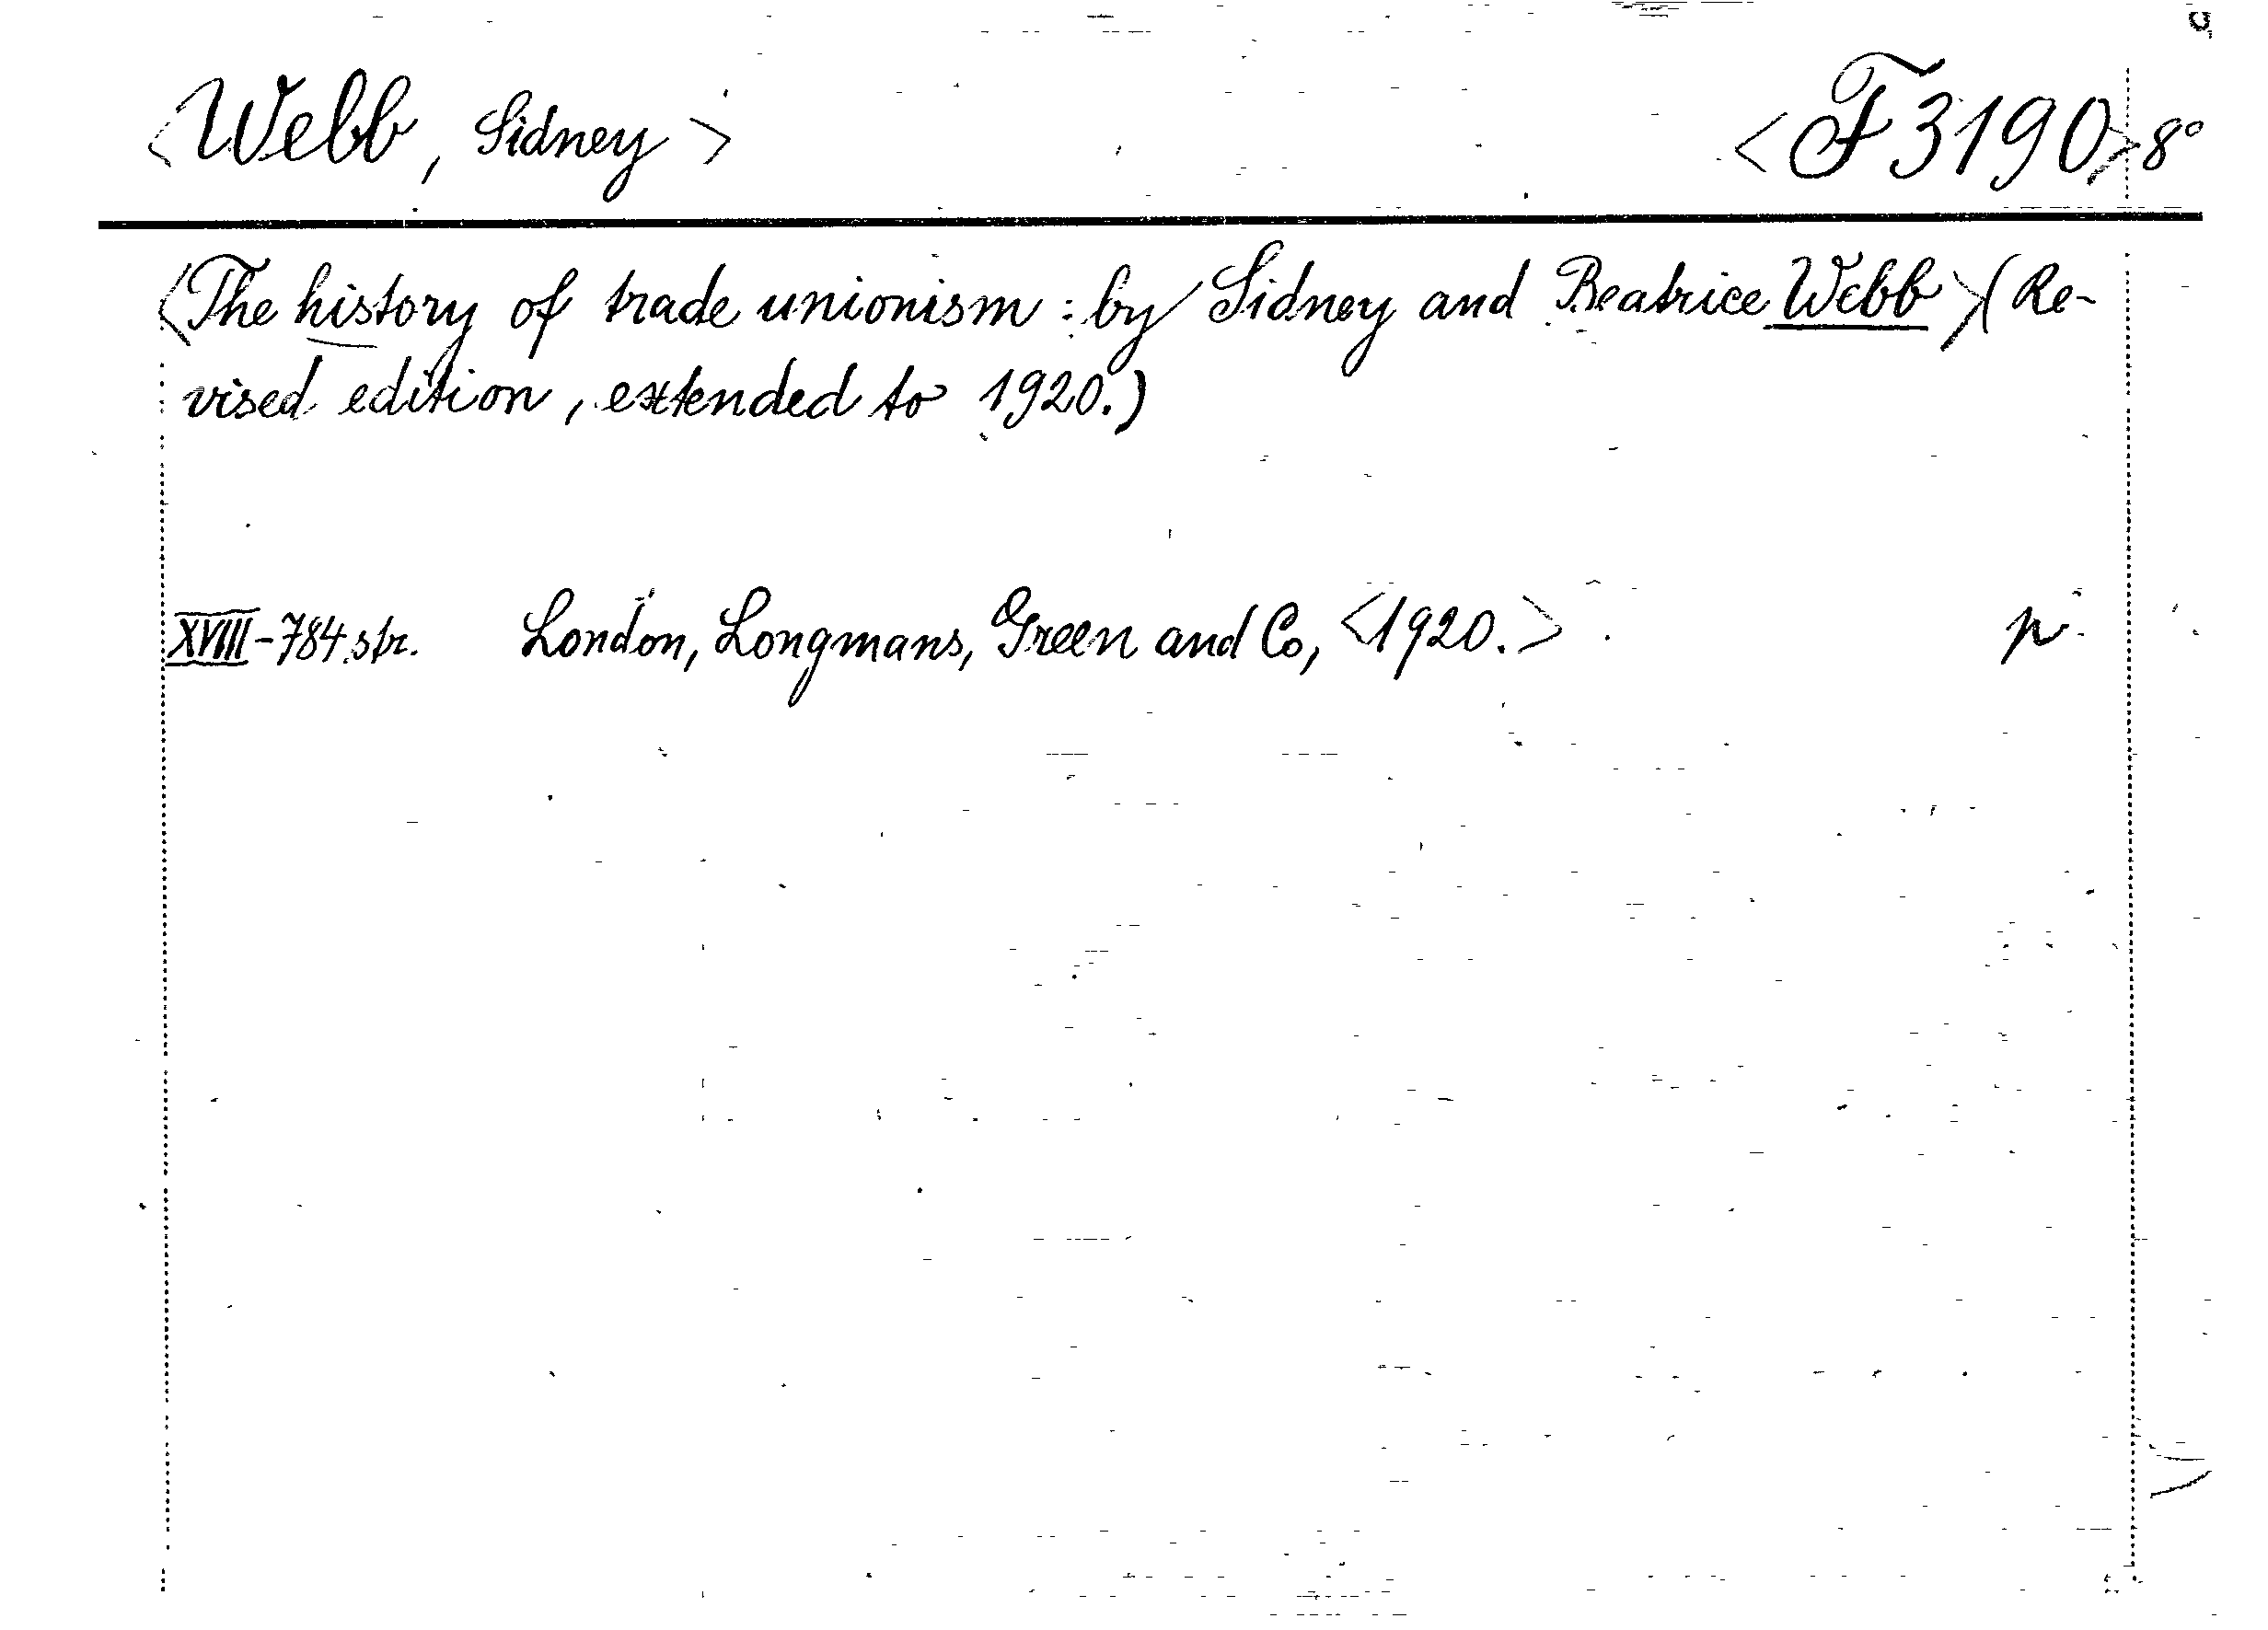 <Webb, Sidney> <F3190> 8°
<The history of trade unionism: by Sidney and Beatrice Webb> (Re-
vised edition, extended to 1920.)
XVIII-784 str. London, Longmans, Green and Co, <1920.> p